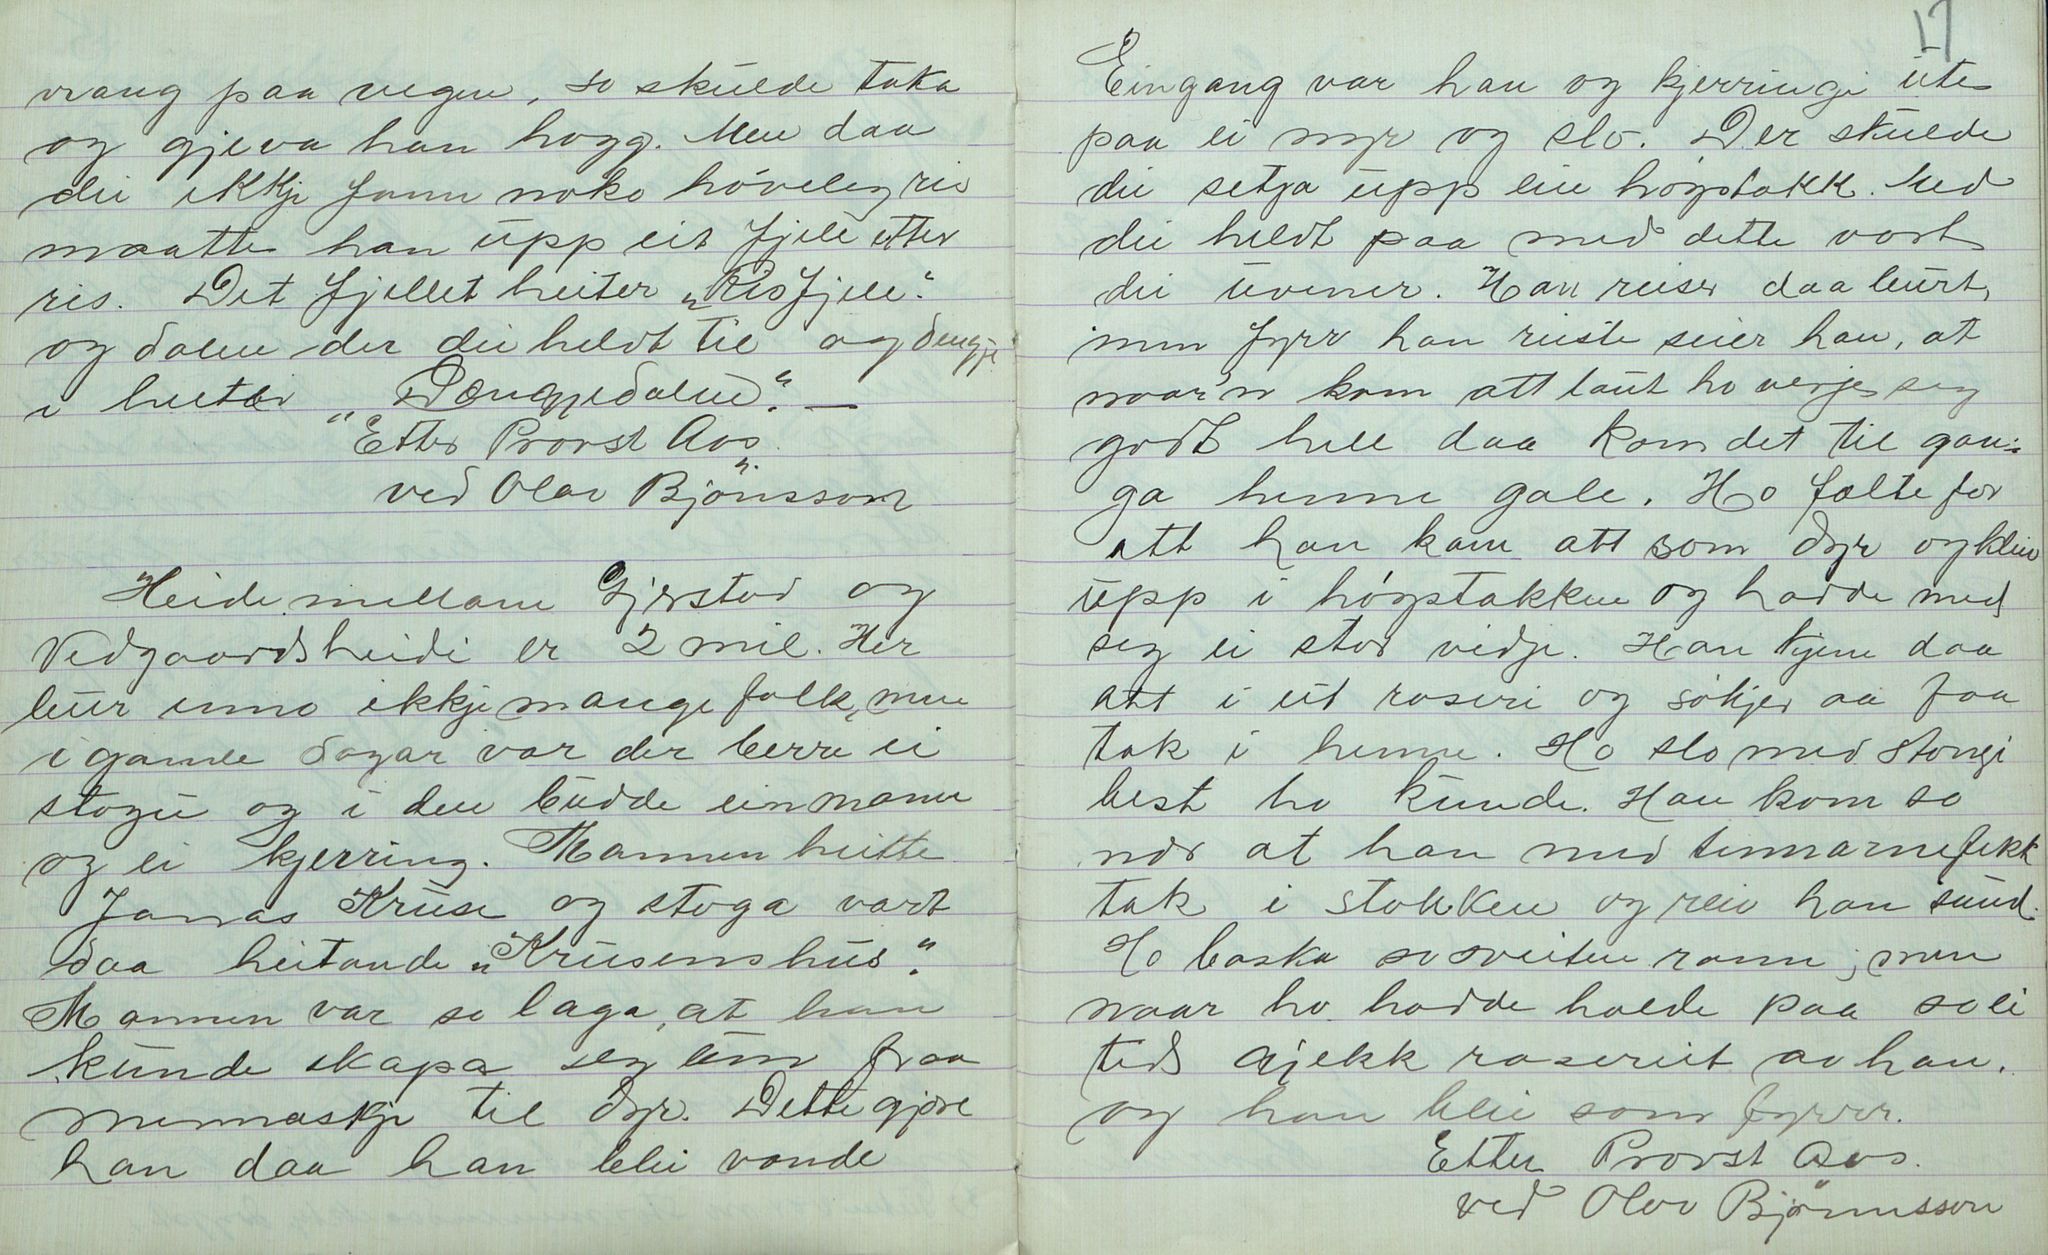 vrang paa vegen, so skulde taka
og gjeva han hogg. Men daa
dei ikkje fann noko høveleg ris
maatte han upp eit fjell etter
ris. Det fjellet heiter „Risfjell“
og dalen der dei heldt til og dengje
i heiter „Dængjedalen“. —
Etter Provst Aas.
ved Olav Bjönsson
Heidi millom Gjerstad og
Vedgaardsheidi er 2 mil. Her
buur enno ikkje mange folk, men
i gamle dagar var der berre ei
stogu og i den budde ein mann
og ei kjerring. Mannen heitte
Jonas Kruse og stoga vart
daa heitande „Krusenshus“.
Mannen var so laga, at han
kunde skapa seg um fraa
menneskje til dyr. Dette gjore
han daa han blei vonde
17
Eingang var han og kjerringi ute
paa ei myr og slo. Der skulde
dei setja upp ein høystakk. Med
dei heldt paa med dette vart
dei uvener. Han reiser daa burt,
men fyrr han reiste seier han, at
naar'n kom att laut ho verje seg
godt hell daa kom det til gan-
ga henne gale. Ho fælte for
att han kom att som dyr og kleiv
upp i høystakken og hadde med
seg ei stor vidje. Han kjem daa
att i eit raseri og søkjer aa faa
tak i henne. Ho slo med stongi
best ho kunde. Han kom so
nær at han med tennarne fekk
tak i stokken og reiv han sund.
Ho baska so sveiten rann; men
naar ho hadde halde paa so ei
tid gjekk raseriet av han,
og han blei som fyrr.
Etter Provst Aas.
ved Olav Bjönnsson